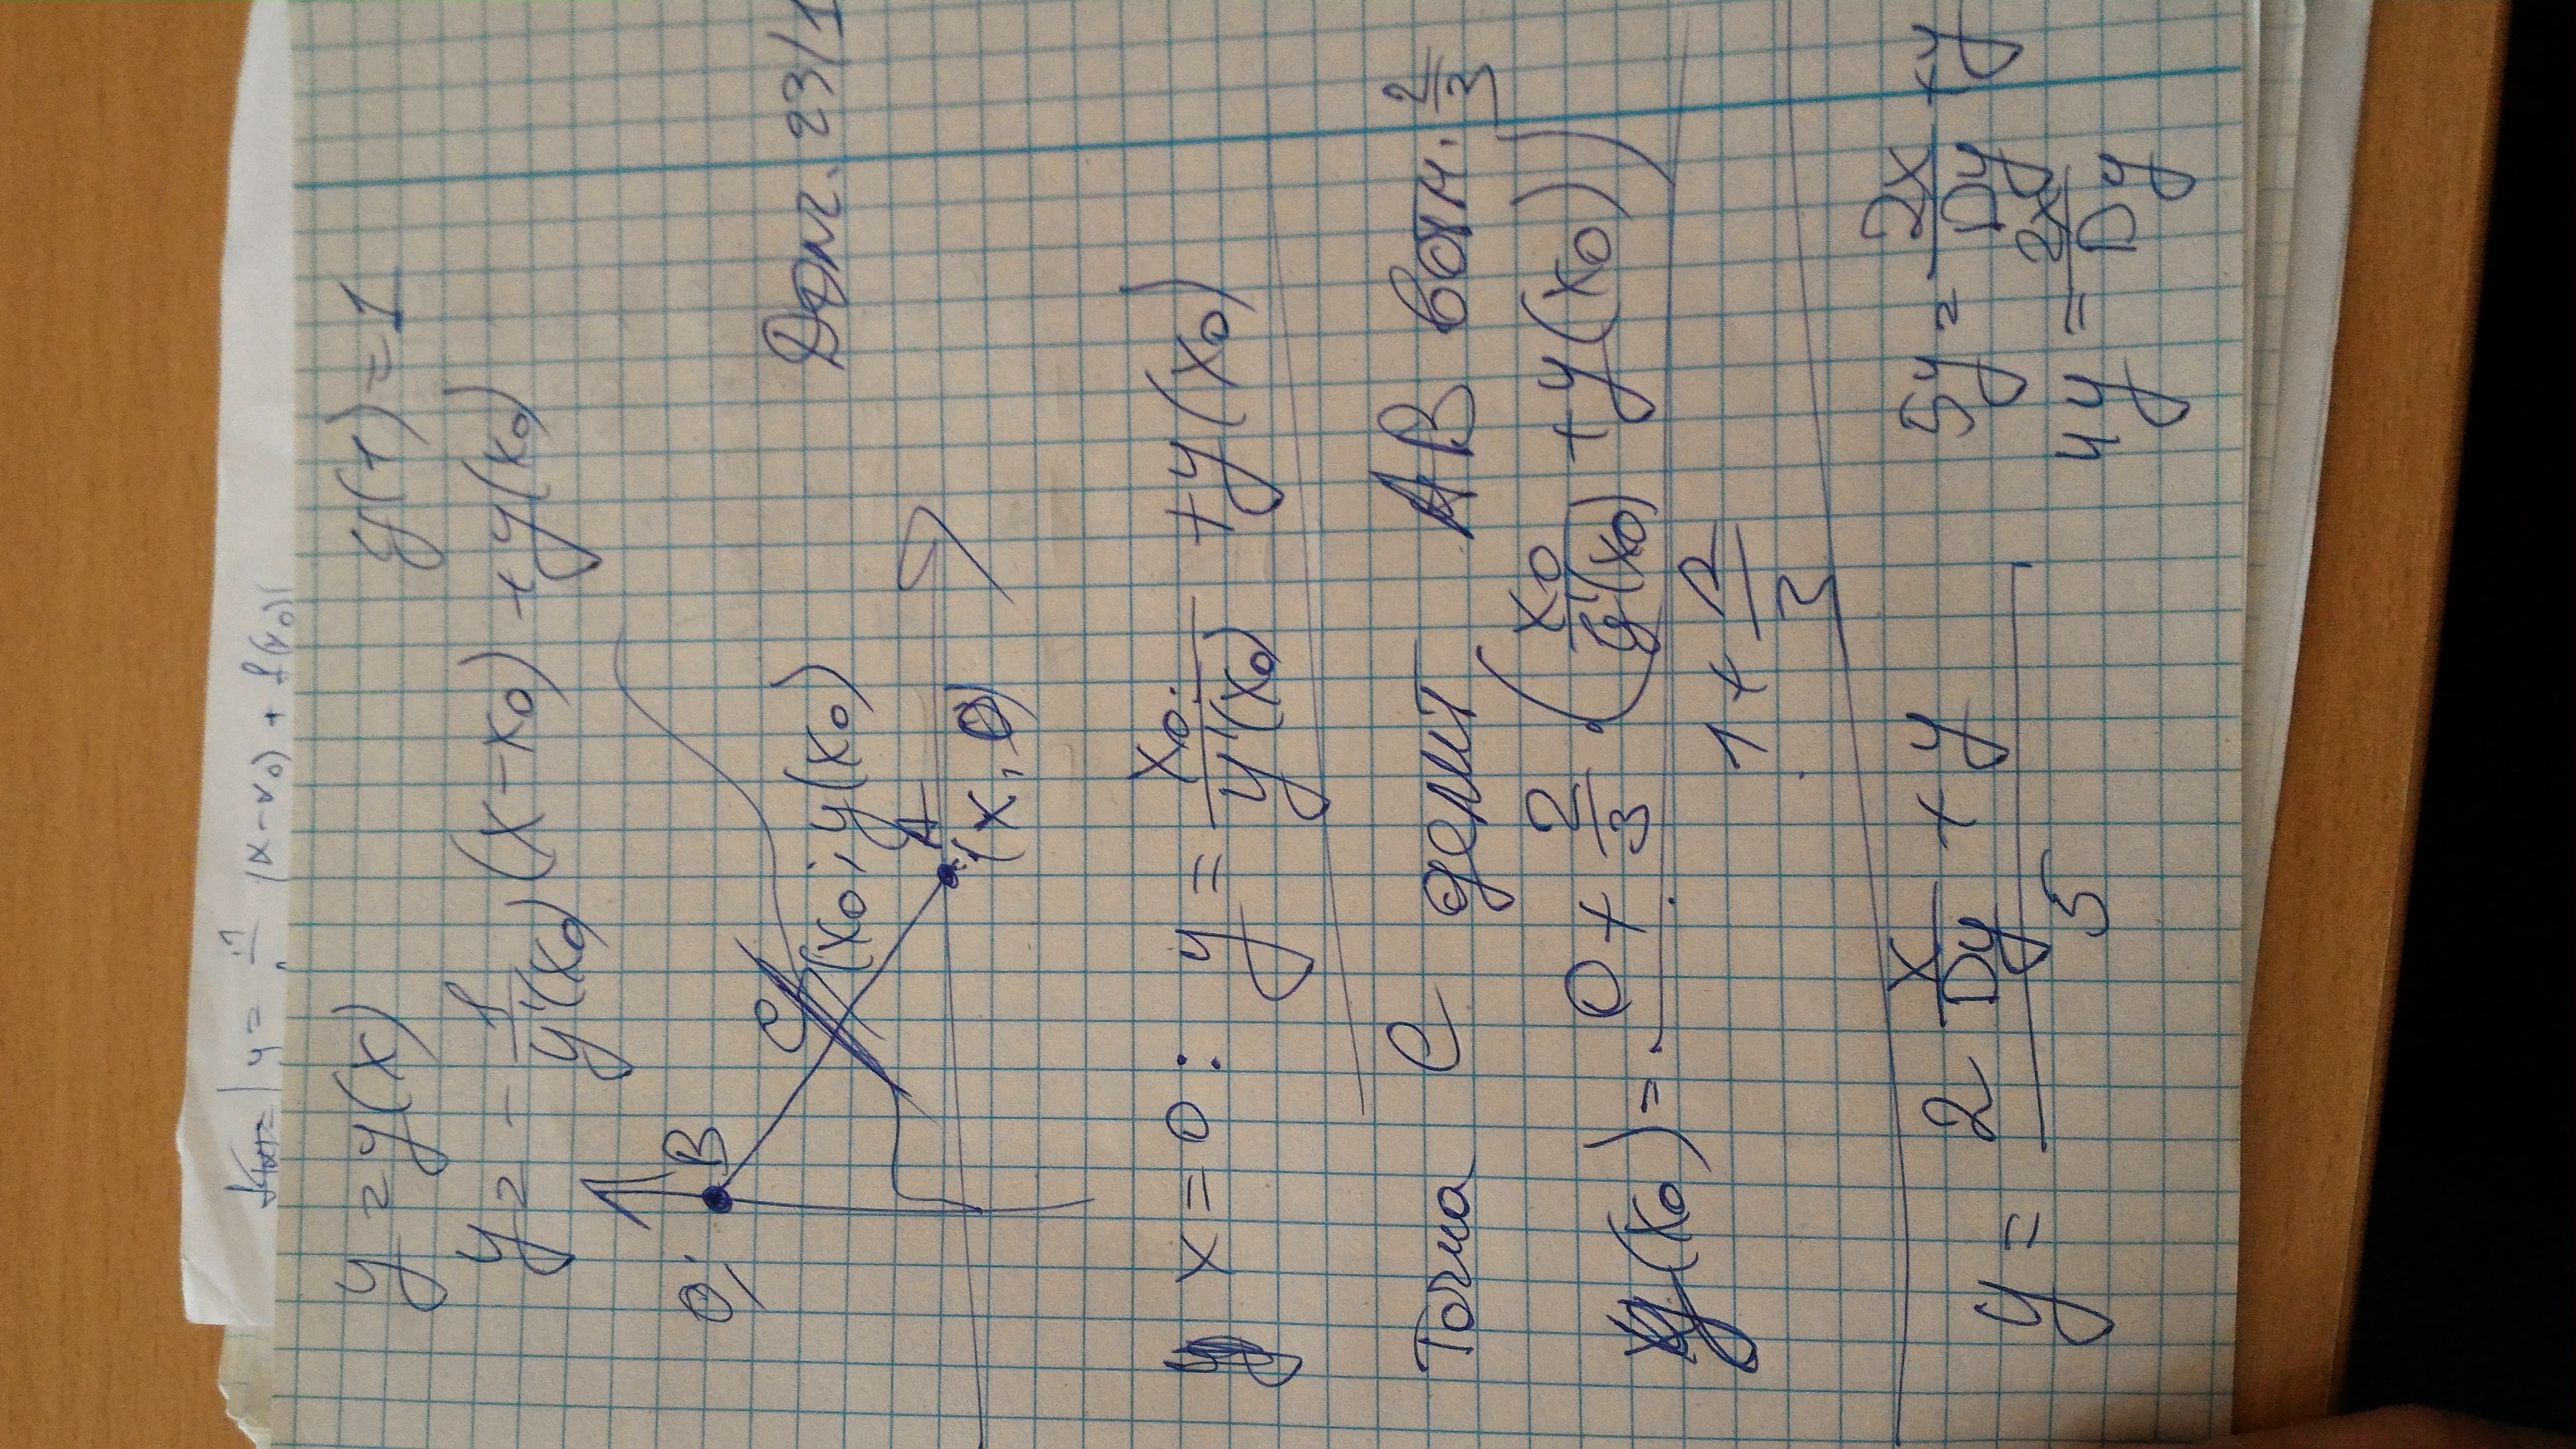 y = (x-x₀) + f(x₀)
y = y(x) y(1) = 1
y = - 1/y'(x₀) (x-x₀) + y(x₀)
0; B
C (x₀; y(x₀)
23/1
A
(x, 0)
x = 0 : y = x₀/y'(x₀) + y(x₀)
Точка C делит AB в отн. 2/3
y(x₀) = (0 + 2/3 · (x₀/y'(x₀) + y(x₀)))/(1 + 2/3)
y = (2 x/Dy + y)/5 5y = 2x/Dy + y
4y = 2x/Dy